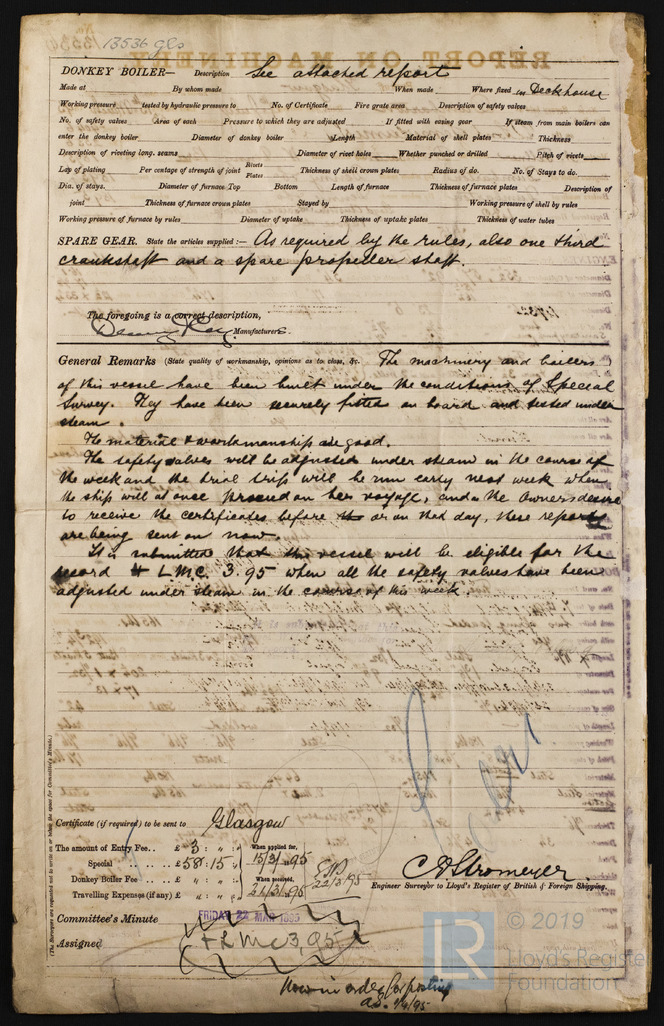 13536 gls
DONKEY BOILER— Description See attached report
Made at By whom made When made Where fixed in Deckhouse
Working pressure tested by hydraulic pressure to No. of Certificate Fire grate area Description of safety valves
No. of safety valves Area of each Pressure to which they are adjusted If fitted with easing gear If steam from main boilers can
enter the donkey boiler Diameter of donkey boiler Length Material of shell plates Thickness
Description of riveting long. seams Diameter of rivet holes Whether punched or drilled Pitch of rivets
Lap of plating Per centage of strength of joint Rivets Plates Thickness of shell crown plates Radius of do. No. of Stays to do.
Dia. of stays. Diameter of furnace Top Bottom Length of furnace Thickness of furnace plates Description of
joint Thickness of furnace crown plates Stayed by Working pressure of shell by rules
Working pressure of furnace by rules Diameter of uptake Thickness of uptake plates Thickness of water tubes
SPARE GEAR. State the articles supplied :— As required by the rules, also one third
crankshaft and a spare propeller shaft.
The foregoing is a correct description,
Manufacturers.
General Remarks (State quality of workmanship, opinions as to class, &c. The machinery and boilers
of this vessel have been built under the conditions of Special
Survey. They have been securely fitted on board and tested under
steam.
The material & workmanship are good.
The safety valves will be adjusted under steam in the course of
the week and the trial trip will be run early next week when
the ship will at once proceed on her voyage, and as the Owners desire
to receive the certificates before or on that day, these reports
are being sent on now.
It is submitted that this vessel will be eligible for the
record + L.M.C. 3.95 when all the safety valves have been
adjusted under steam in the course of this week.
(The Surveyors are requested not to write on or below the space for Committee's Minute.)
Certificate (if required) to be sent to Glasgow
The amount of Entry Fee . . £ 3 : " : " When applied for,
Special . . £ 58 : 15 : " 15/3/95
Donkey Boiler Fee . . £ " : " : " When received,
Travelling Expenses (if any) £ " : " : " 21/3/95
22/3/95
C.E. Stromeyer
Engineer Surveyor to Lloyd's Register of British & Foreign Shipping.
Committee's Minute FRIDAY 22 MAR 1895
Assigned + LMC 3,95
Now in order for posting
© 2019
Lloyd's Register
Foundation